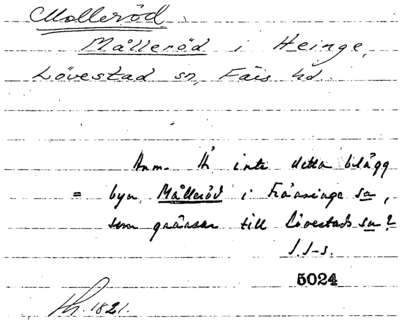 Molleröd.
Målleröd i Heinge,
Lövestad sn, Färs hd.
Anm. Är inte detta belägg
= byn Målleröd i Fränninge sn,
som gränsar till Lövestads sn?
I.I-s.
5024
Th. 1821.